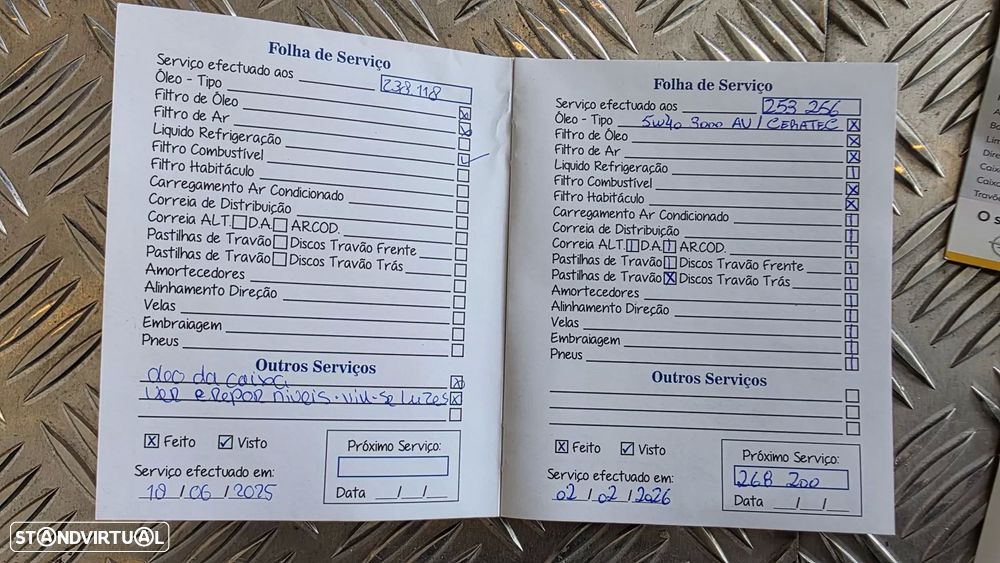 Folha de Serviço
Serviço efectuado aos 238 118
Óleo - Tipo
Filtro de Óleo
Filtro de Ar
Liquido Refrigeração
Filtro Combustível
Filtro Habitáculo
Carregamento Ar Condicionado
Correia de Distribuição
Correia ALT. D.A. ARCOD.
Pastilhas de Travão Discos Travão Frente
Pastilhas de Travão Discos Travão Trás
Amortecedores
Alinhamento Direção
Velas
Embraiagem
Pneus
Outros Serviços
oleo da caixa
ver e repor niveis. viu-se luzes
X Feito ✓ Visto
Serviço efectuado em:
18 / 06 / 2025
Próximo Serviço:
Data __/__/__
Folha de Serviço
Serviço efectuado aos 253 256
Óleo - Tipo 5W40 3000 AV / CERATEC X
Filtro de Óleo X
Filtro de Ar X
Liquido Refrigeração
Filtro Combustível X
Filtro Habitáculo X
Carregamento Ar Condicionado
Correia de Distribuição
Correia ALT. D.A. ARCOD.
Pastilhas de Travão Discos Travão Frente
Pastilhas de Travão X Discos Travão Trás
Amortecedores
Alinhamento Direção
Velas
Embraiagem
Pneus
Outros Serviços
X Feito ✓ Visto
Serviço efectuado em:
02 / 02 / 2026
Próximo Serviço:
268 200
Data __/__/__
Lim
Dire
Caixa
Caixa
Travõ
O s
STANDVIRTUAL